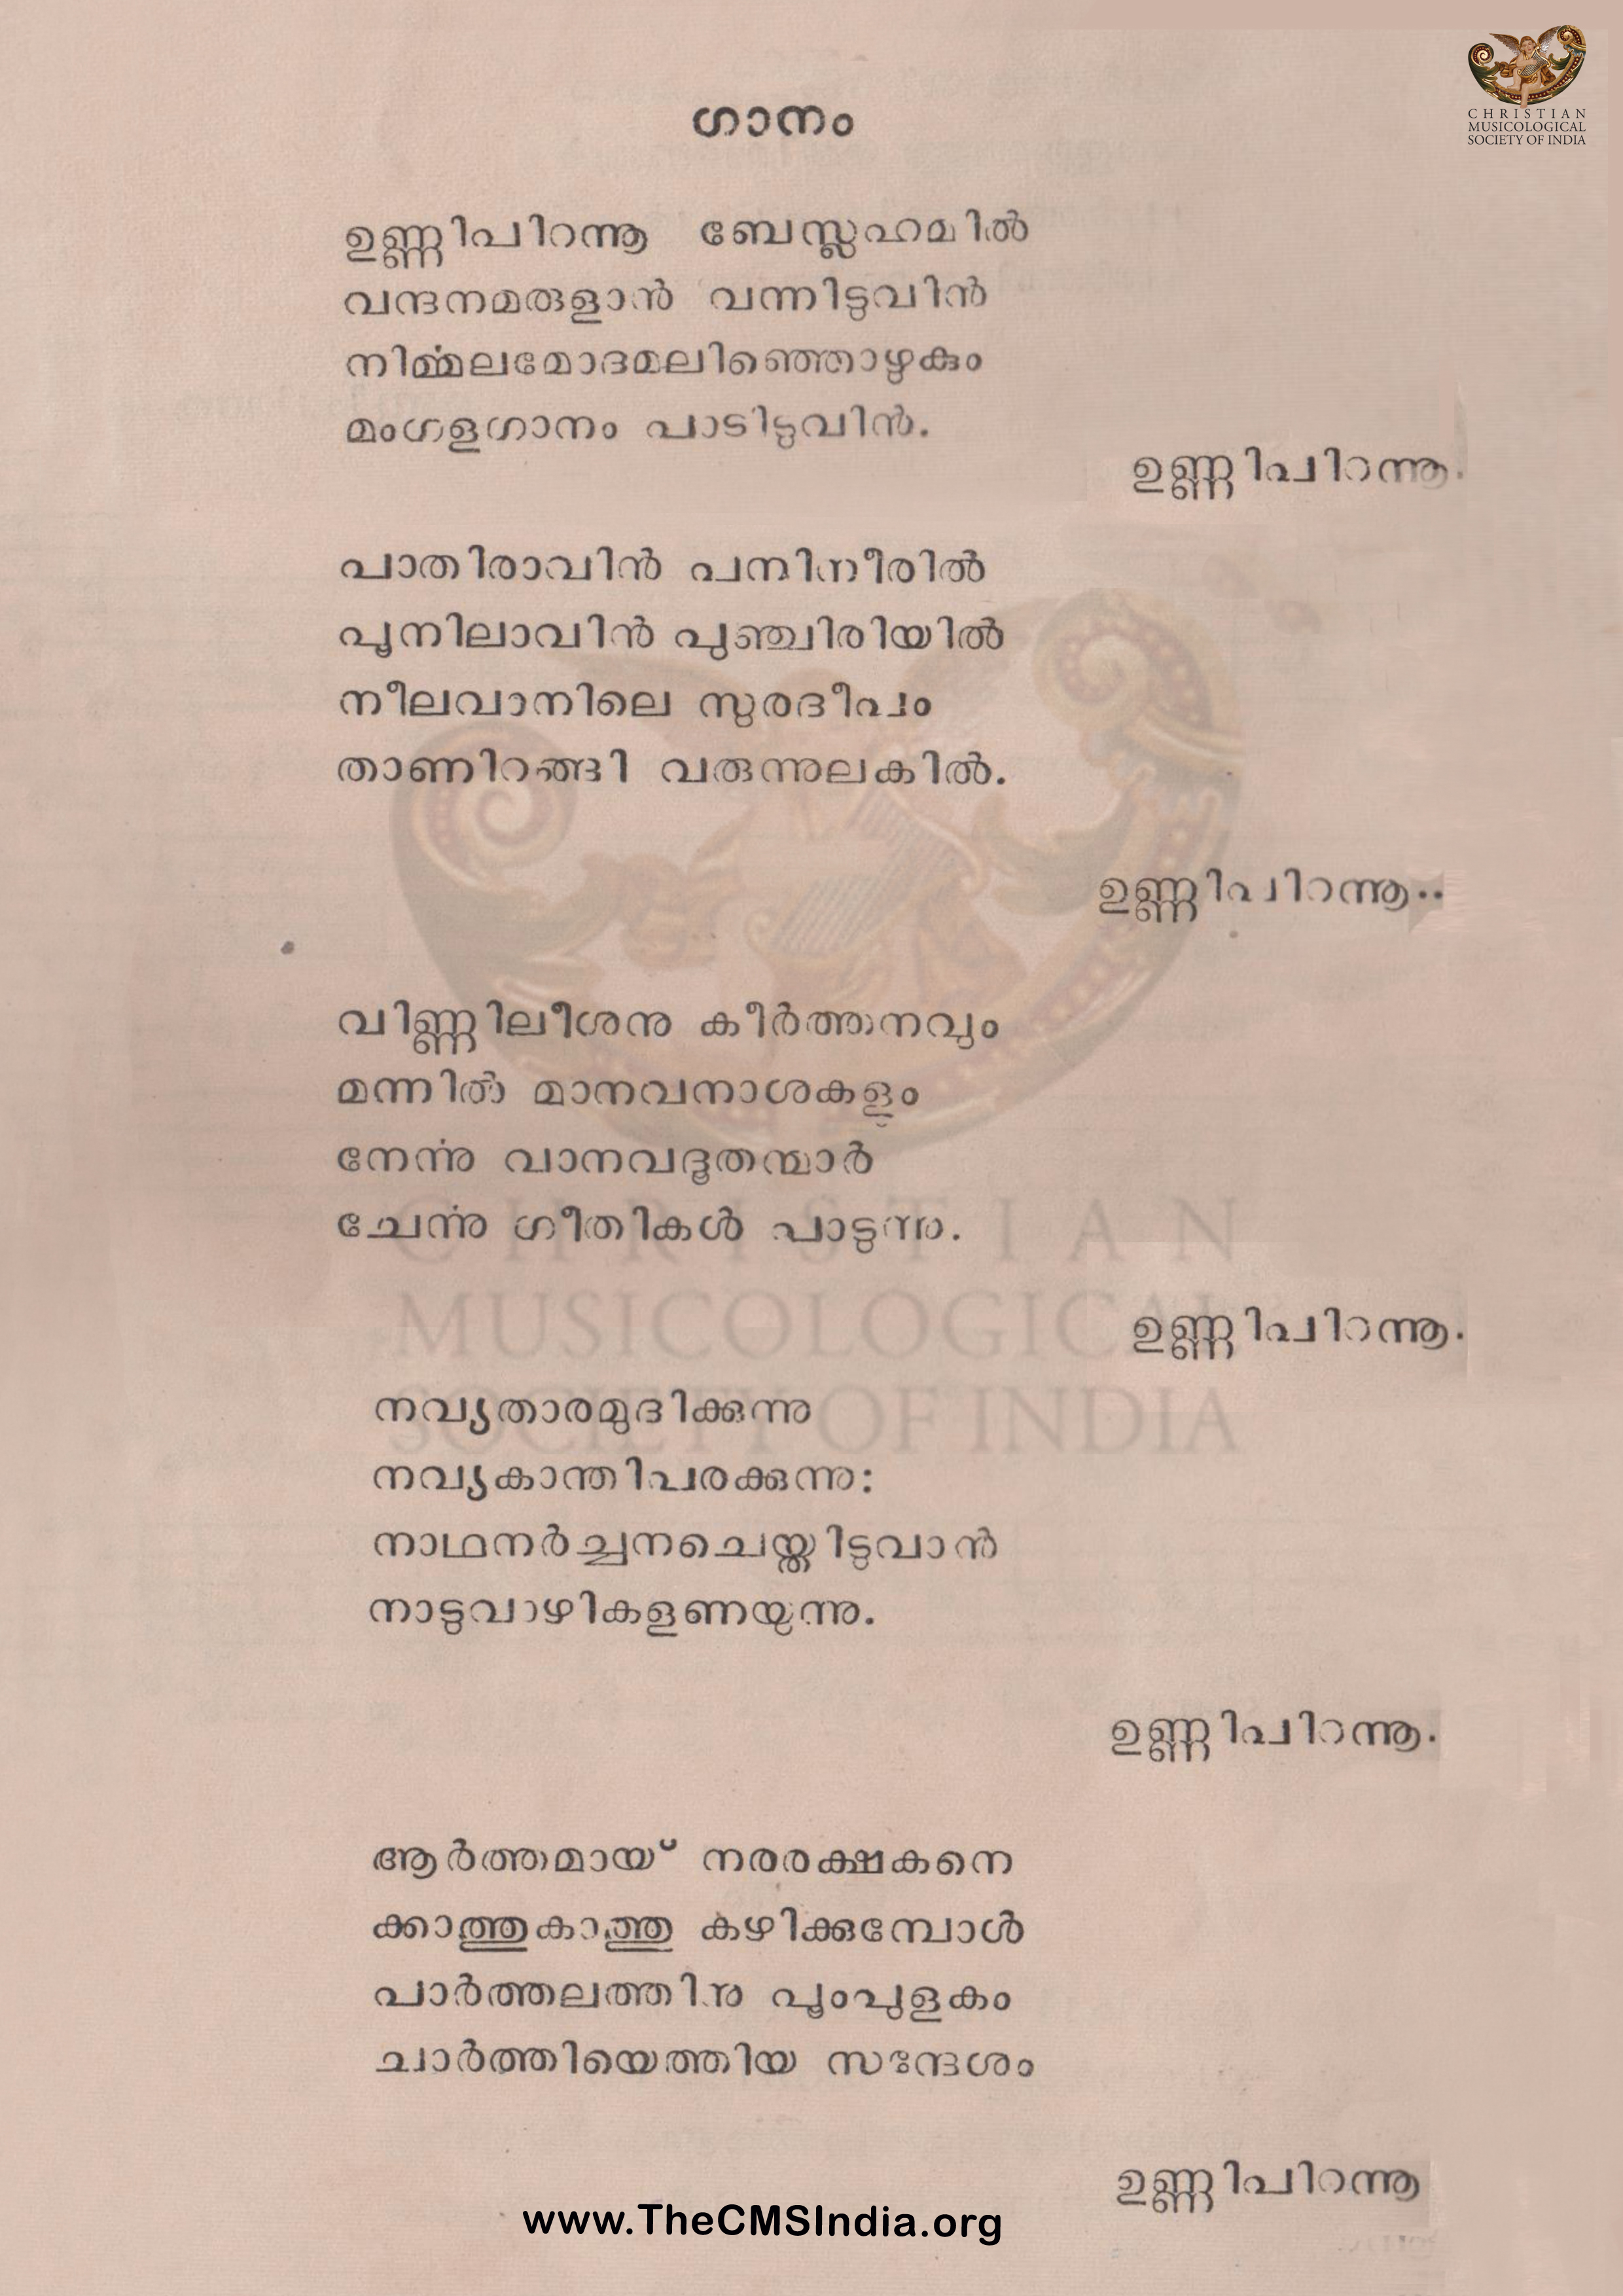 CHRISTIAN
MUSICOLOGICAL
SOCIETY OF INDIA
ഗാനം
ഉണ്ണിപിറന്നൂ ബേസ്ലഹമിൽ
വന്ദനമരുളാൻ വന്നിടുവിൻ
നിൎമ്മലമോദമലിഞ്ഞൊഴുകും
മംഗളഗാനം പാടിടുവിൻ.
ഉണ്ണിപിറന്നൂ.
പാതിരാവിൻ പനിനീരിൽ
പൂനിലാവിൻ പുഞ്ചിരിയിൽ
നീലവാനിലെ സുരദീപം
താണിറങ്ങി വരുന്നുലകിൽ.
ഉണ്ണിപിറന്നൂ..
വിണ്ണിലീശനു കീർത്തനവും
മന്നിൽ മാനവനാശകളും
നേൎന്നു വാനവദൂതന്മാർ
ചേൎന്നു ഗീതികൾ പാടുന്നു.
CHRISTIAN
MUSICOLOGICAL
ഉണ്ണിപിറന്നൂ.
നവ്യതാരമുദിക്കുന്നു
SOCIETY OF INDIA
നവ്യകാന്തിപരക്കുന്നു:
നാഥനർച്ചനചെയ്തിടുവാൻ
നാടുവാഴികളണയുന്നു.
ഉണ്ണിപിറന്നൂ.
ആർത്തമായ് നരരക്ഷകനെ
ക്കാത്തുകാത്തു കഴിക്കുമ്പോൾ
പാർത്തലത്തിനു പൂംപുളകം
ചാർത്തിയെത്തിയ സന്ദേശം
ഉണ്ണിപിറന്നൂ
www.TheCMSIndia.org